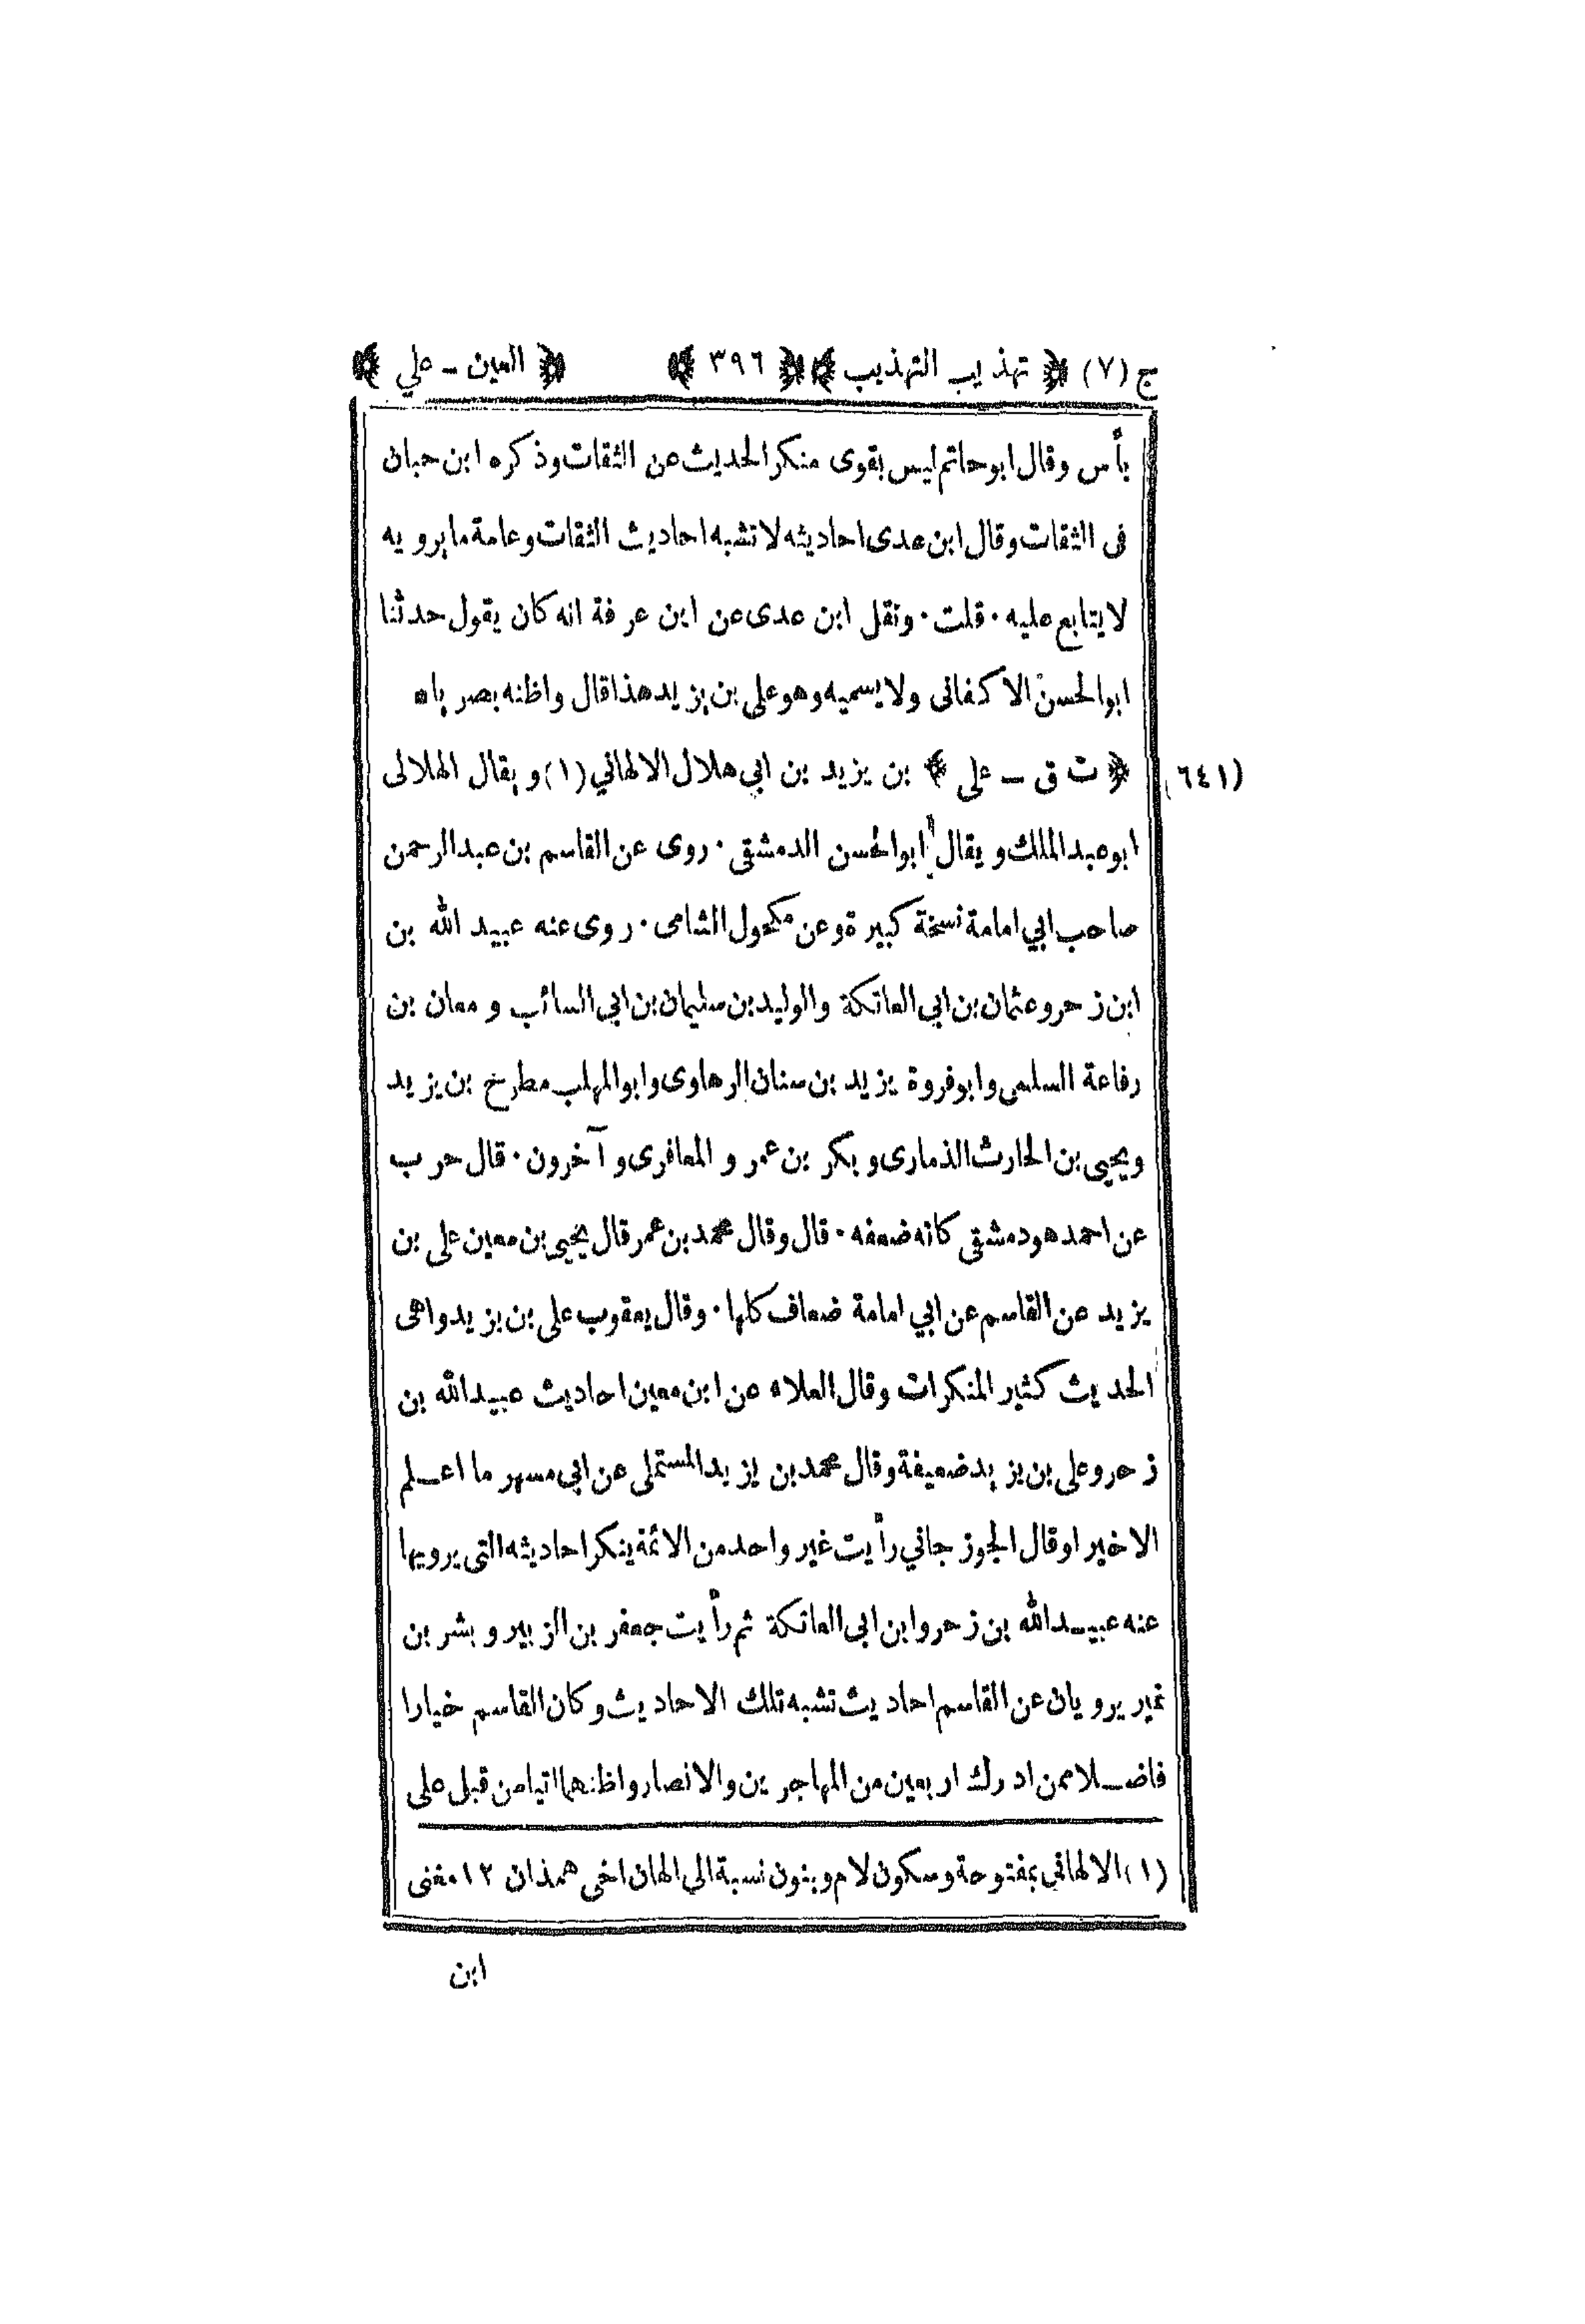 ج (٧) ﴿ تهذيب التهذيب ﴾ ﴿ ٣٩٦ ﴾ ﴿ العين ـ علي ﴾
بأس وقال ابو حاتم ليس بقوى منكر الحديث عن الثقات وذكره ابن حبان
فى الثقات وقال ابن عدى احاديثه لا تشبه احاديث الثقات وعامة ما يرويه
لا يتابع عليه · قلت · ونقل ابن عدى عن ابن عرفة انه كان يقول حدثنا
ابو الحسن الاكفانى ولا يسميه وهو على بن يزيد هذا قال واظنه بصر ياه
(٦٤١) ﴿ ت ق ـ على ﴾ بن يزيد بن ابي هلال الالهاني (١) ويقال الهلالى
ابو عبد الملك ويقال ابو الحسن الدمشقى · روى عن القاسم بن عبد الرحمن
صاحب ابي امامة نسخة كبيرة وعن مكحول الشامى · روى عنه عبيد الله بن
ابن زحر وعثمان بن ابي العاتكة والوليد بن سليمان بن ابي السائب ومعان بن
رفاعة السلمى وابو فروة يزيد بن سنان الرهاوى وابو المهلب مطرح بن يزيد
ويحيى بن الحارث الذمارى وبكر بن عمرو المعافرى وآخرون · قال حرب
عن احمد هو دمشقى كانه ضعفه · قال وقال محمد بن عمر قال يحيى بن معين على بن
يزيد عن القاسم عن ابي امامة ضعاف كلها · وقال يعقوب على بن يزيد واهى
الحديث كثير المنكرات وقال العلاء عن ابن معين احاديث عبيد الله بن
زحر وعلى بن يزيد ضعيفة وقال محمد بن يزيد المستملى عن ابى مسهر ما اعلم
الا خيرا وقال الجوزجاني رأيت غير واحد من الائمة ينكر احاديثه التى يرويها
عنه عبيد الله بن زحر وابن ابى العاتكة ثم رأيت جعفر بن الزبير وبشر بن
نمير يرويان عن القاسم احاديث تشبه تلك الاحاديث وكان القاسم خيارا
فاضلا ممن ادرك اربعين من المهاجرين والانصار واظنهما اتيا من قبل على
(١) الالهاني بمفتوحة وسكون لام وبنون نسبة الى الهان اخى همذان ١٢ مغنى
ابن